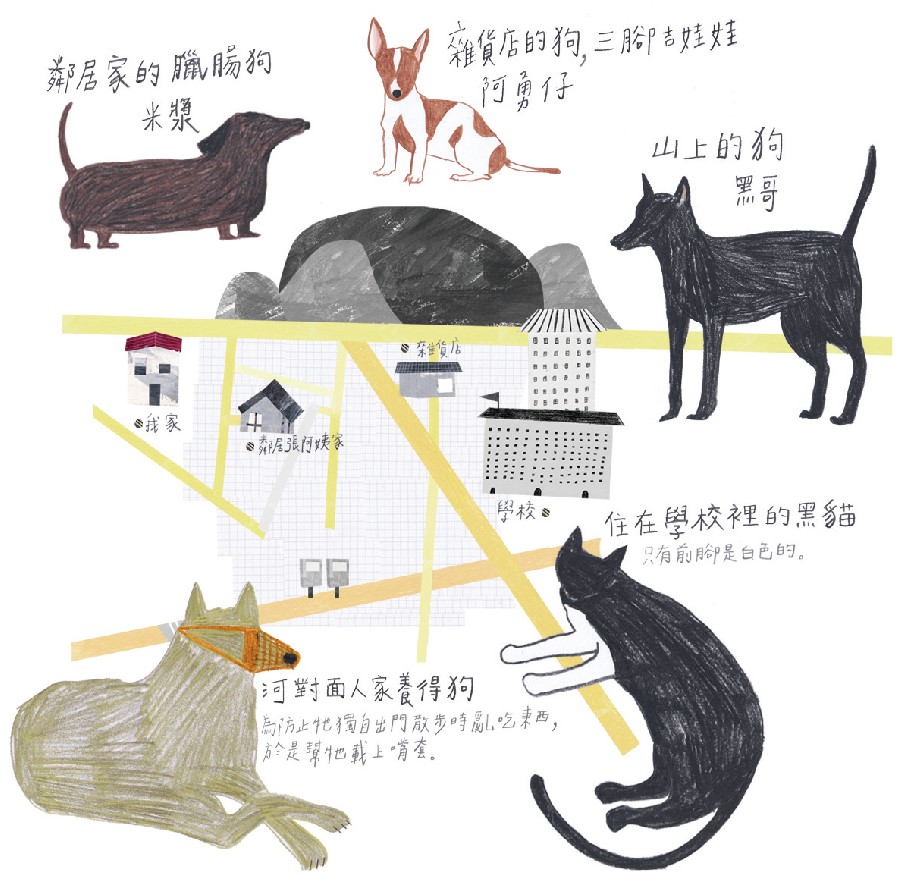 鄰居家的臘腸狗
米漿
雜貨店的狗,三腳吉娃娃
阿勇仔
山上的狗
黑哥
雜貨店
我家
鄰居張阿姨家
學校
住在學校裡的黑貓
只有前腳是白色的。
河對面人家養得狗
為防止牠獨自出門散步時亂吃東西,
於是幫牠載上嘴套。